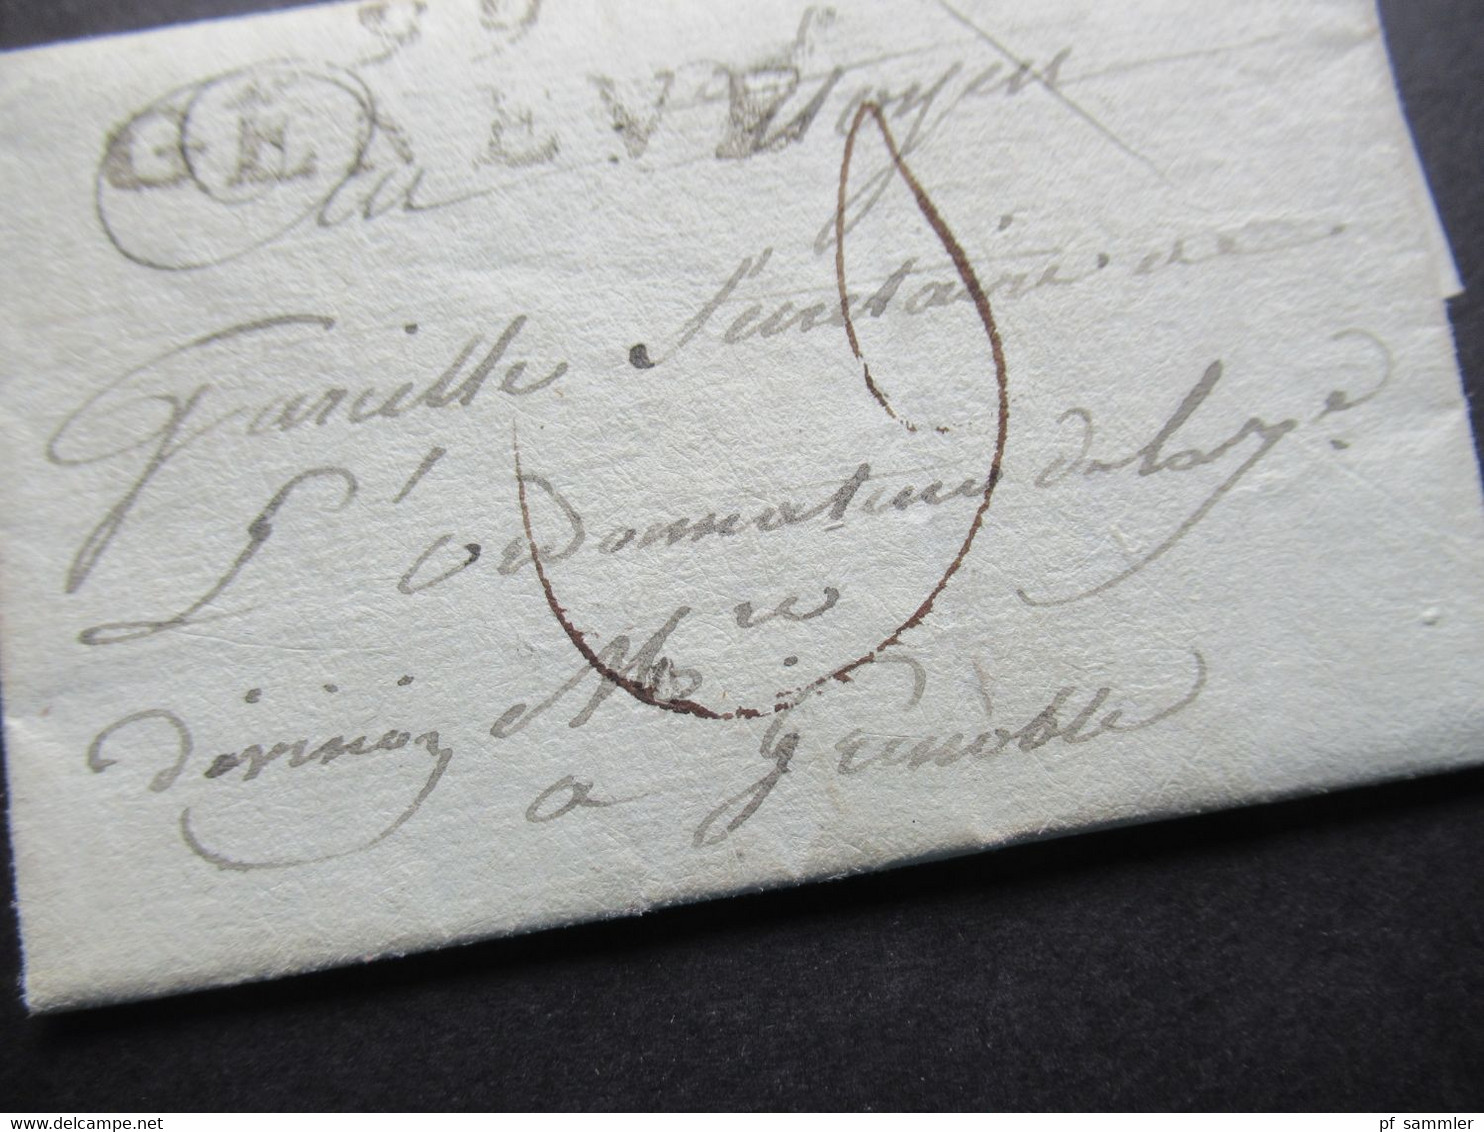 99
GENEVE
Au Citoyen
Secretaire de
L'ordonnateur de la 7e
Division Mre
a Grenoble
pf_sammler